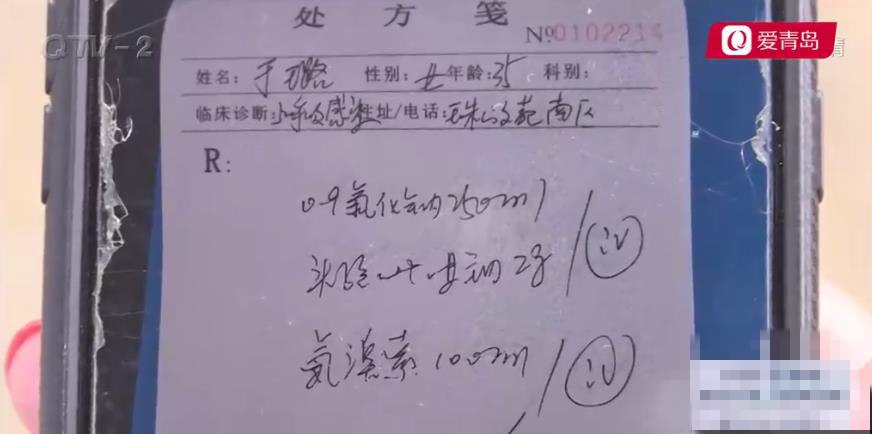 处方笺
QTV-2
爱青岛
№0102214
姓名: 于璐 性别: 女 年龄: 35 科别:
临床诊断: 上呼吸感染 住址/电话: 珠 苑南区
R:
0.9氯化钠250ml
头孢 钠2g / iv
氨溴索100ml / iv